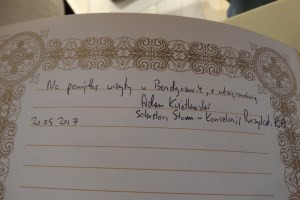 Na pamiątkę wizyty w Berdyczowie, z wdzięcznością
Adam Kwiatkowski
20.05.2017
Sekretarz Stanu - Kancelarii Prezydenta RP